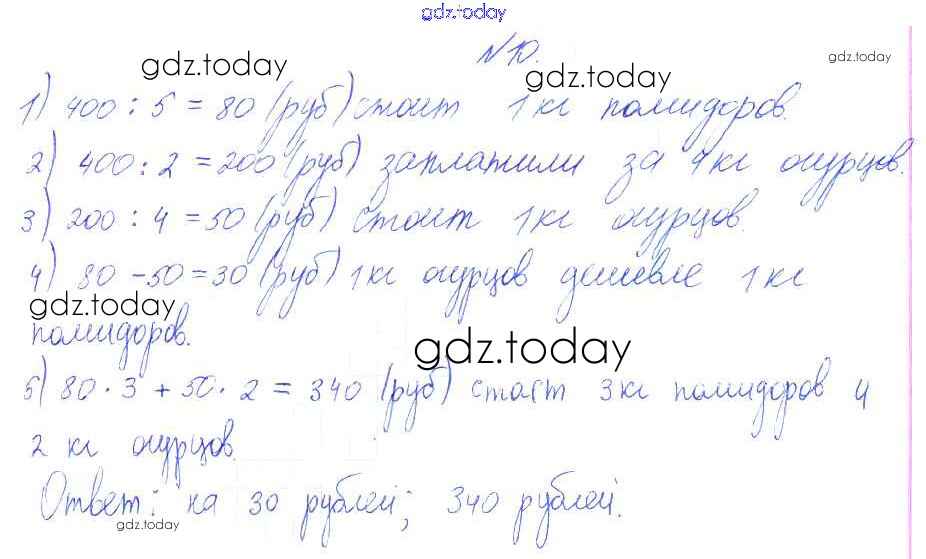 gdz.today
№10.
gdz.today
gdz.today
gdz.today
1) 400 : 5 = 80 (руб) стоит 1 кг помидоров.
2) 400 : 2 = 200 (руб) заплатили за 4 кг огурцов.
3) 200 : 4 = 50 (руб) стоит 1 кг огурцов.
4) 80 - 50 = 30 (руб) 1 кг огурцов дешевле 1 кг
gdz.today
помидоров.
gdz.today
5) 80 · 3 + 50 · 2 = 340 (руб) стоят 3 кг помидоров и
2 кг огурцов.
Ответ: на 30 рублей; 340 рублей.
gdz.today